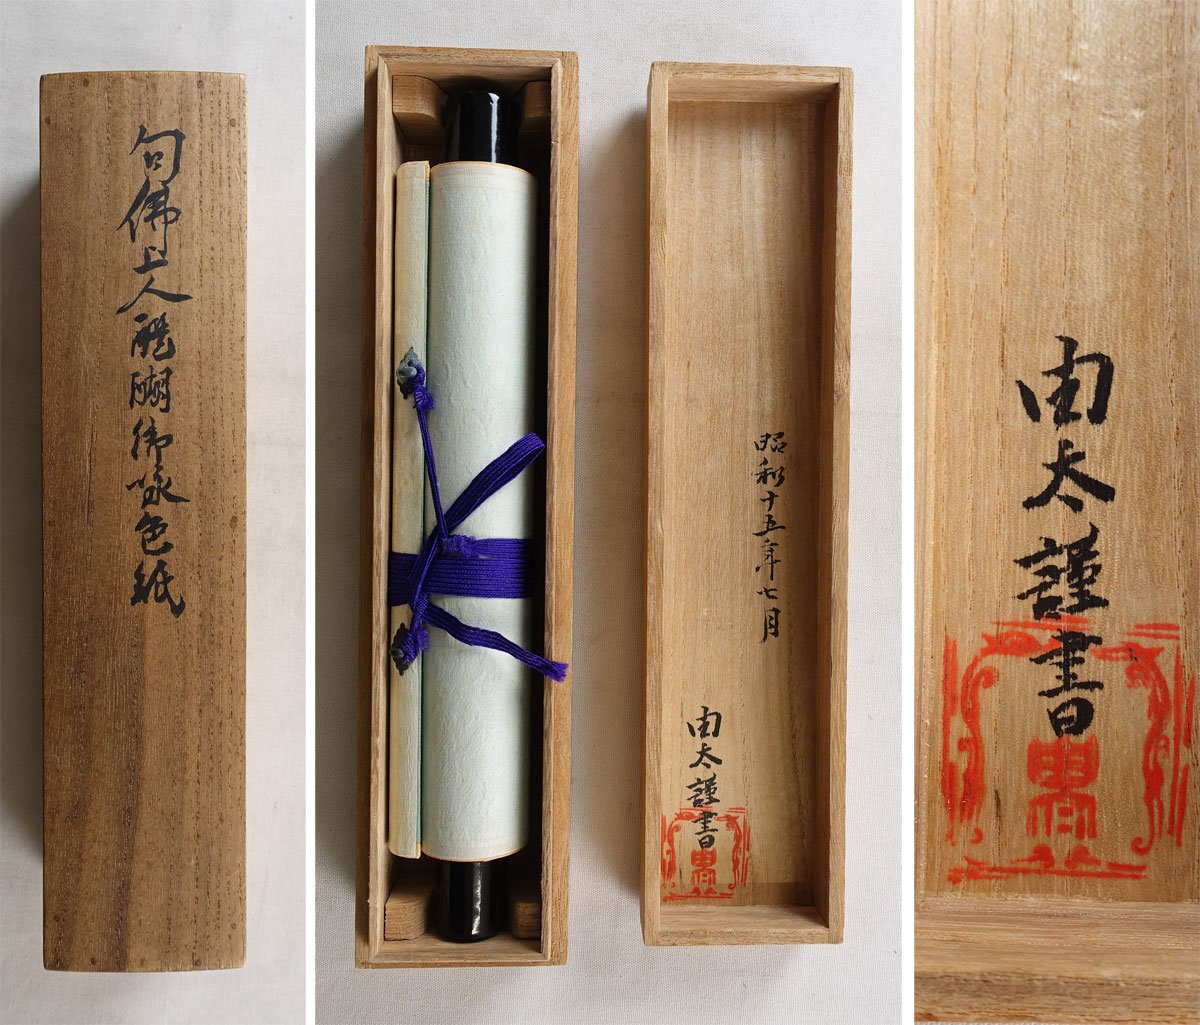 句佛上人醍醐御咏色紙
昭和十五年七月
由太謹書
由太謹書